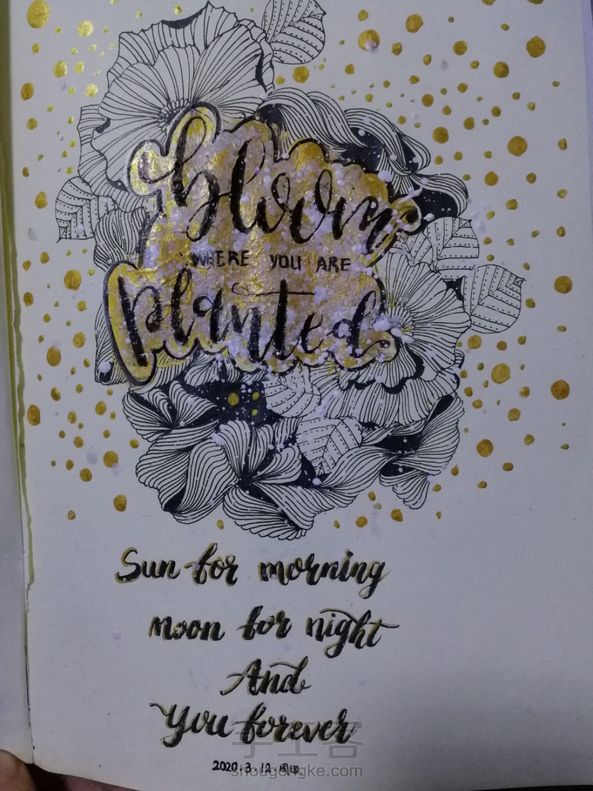 bloom
WHERE YOU ARE
planted
Sun for morning
moon for night
And
You forever
2020.3.12.周四
手工客
shougongke.com